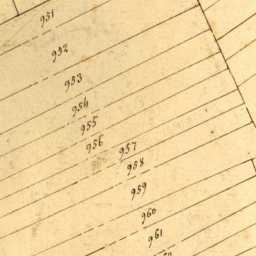 951
952
953
954
955
956
957
958
959
960
961